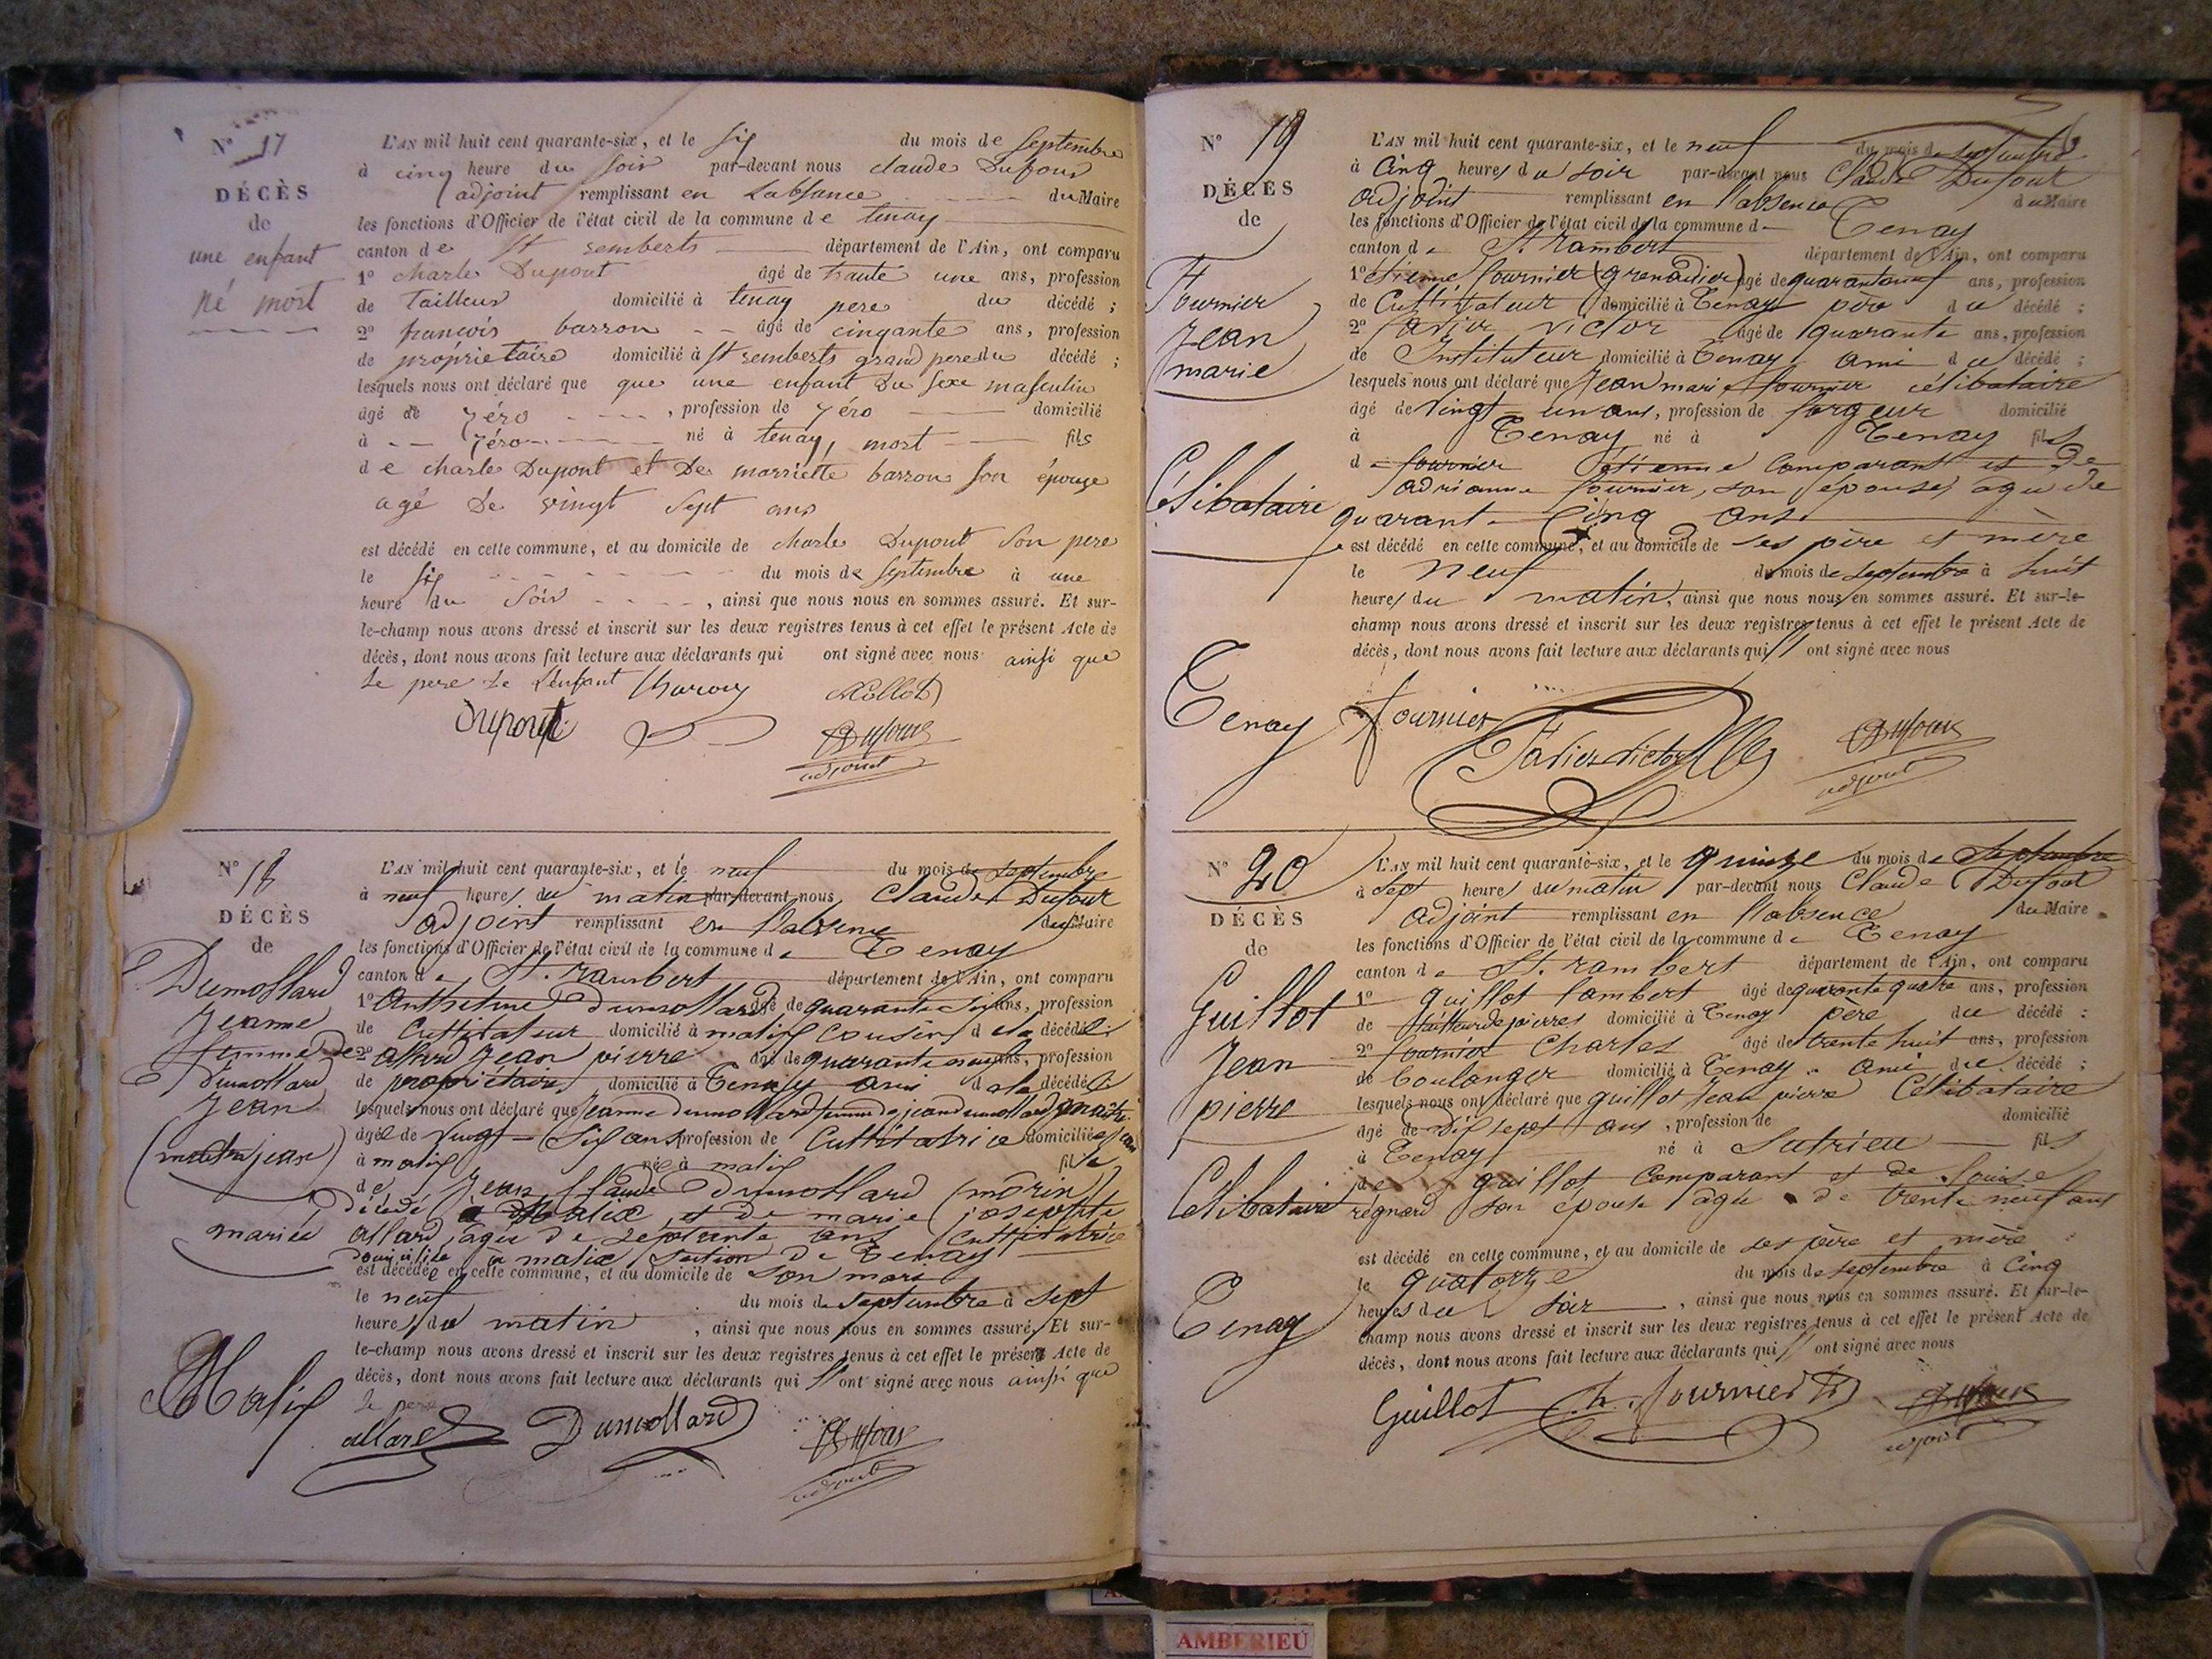 N° 17
DÉCÈS
de
une enfant
né mort
L'AN mil huit cent quarante-six, et le six du mois de Septembre
à cinq heure du soir par-devant nous claude Dufour
adjoint remplissant en Labsance du Maire
les fonctions d'Officier de l'état civil de la commune de tenay
canton de St remberts département de l'Ain, ont comparu
1° charle Dupont âgé de trante une ans, profession
de Tailleur domicilié à tenay pere du décédé ;
2° francois barron âgé de cinqante ans, profession
de propriétaire domicilié à St remberts grand pere du décédé ;
lesquels nous ont déclaré que que une enfant Du Sexe masculin
âgé de zéro , profession de zéro domicilié
à zéro né à tenay, mort fils
de charle Dupont et De marriette barron son épouze
agé De vingt Sept ans
est décédé en cette commune, et au domicile de charle Dupont Son pere
le six du mois de Septembre à une
heure du Soir , ainsi que nous nous en sommes assuré. Et sur-
le-champ nous avons dressé et inscrit sur les deux registres tenus à cet effet le présent Acte de
décès, dont nous avons fait lecture aux déclarants qui ont signé avec nous ainsi que
Le pere de Lenfant
Dupont Dufour
adjoint
N° 18
DÉCÈS
de
Dumollard
Jeanne
femme de
Dumollard
Jean
jean)
mariée
Malix
L'AN mil huit cent quarante-six, et le neuf du mois de septembre
à neuf heures du matin par-devant nous Claude Dufour
adjoint remplissant en l'absence du Maire
les fonctions d'Officier de l'état civil de la commune de Tenay
canton de St. rambert département de l'Ain, ont comparu
1° Anthelme Dumollard âgé de quarante six ans, profession
de Cultivateur domicilié à malix cousin de la décédée
2° allard Jean pierre âgé de quarante ans, profession
de propriétaire domicilié à Tenay ami de la décédée
lesquels nous ont déclaré que Jeanne dumollard femme de jean dumollard
âgée de vingt-six ans profession de Cultivatrice domiciliée
à malix née à malix fille
de Jean Claude Dumollard (morin)
décédé à Malix, et de marie josephte
allard, agée de septante ans Cultivatrice
domiciliée à malix section de Tenay
est décédée en cette commune, et au domicile de son mari
le neuf du mois de septembre à sept
heures du matin , ainsi que nous nous en sommes assuré. Et sur-
le-champ nous avons dressé et inscrit sur les deux registres tenus à cet effet le présent Acte de
décès, dont nous avons fait lecture aux déclarants qui ont signé avec nous ainsi que
le pere
allard Dumollard Dufour
adjoint
N° 19
DÉCÈS
de
Fournier
Jean
marie
Célibataire
Tenay
L'AN mil huit cent quarante-six, et le neuf du mois de septembre
à Cinq heures du soir par-devant nous Claude Dufour
adjoint remplissant en l'absence du Maire
les fonctions d'Officier de l'état civil de la commune de Tenay
canton de St. rambert département de l'Ain, ont comparu
1° etienne fournier (grenadier) âgé de quarante neuf ans, profession
de Cultivateur domicilié à Tenay père du décédé ;
2° favier Victor âgé de quarante ans, profession
de Instituteur domicilié à Tenay ami du décédé ;
lesquels nous ont déclaré que Jean marie fournier célibataire
âgé de vingt-un ans, profession de forgeur domicilié
à Tenay né à Tenay fils
de fournier Etienne Comparant et de
adrianne fournier, son épouse, agée de
quarante-Cinq ans
est décédé en cette commune, et au domicile de ses père et mère
le neuf du mois de septembre à huit
heures du matin, ainsi que nous nous en sommes assuré. Et sur-le-
champ nous avons dressé et inscrit sur les deux registres tenus à cet effet le présent Acte de
décès, dont nous avons fait lecture aux déclarants qui ont signé avec nous
fournier Favier Victor Dufour
adjoint
N° 20
DÉCÈS
de
Guillot
Jean
pierre
Célibataire
Tenay
L'AN mil huit cent quarante-six, et le quinze du mois de Septembre
à sept heures du matin par-devant nous Claude Dufour
adjoint remplissant en l'absence du Maire
les fonctions d'Officier de l'état civil de la commune de Tenay
canton de St. rambert département de l'Ain, ont comparu
1° guillot lambert âgé de quarante quatre ans, profession
de tailleur de pierres domicilié à Tenay père du décédé ;
2° fournier Charles âgé de trente huit ans, profession
de boulanger domicilié à Tenay ami du décédé ;
lesquels nous ont déclaré que guillot Jean pierre Célibataire
âgé de dix sept ans , profession de domicilié
à Tenay né à Sutrieu fils
de guillot Comparant et de louise
régnard son épouse agée de trente neuf ans
est décédé en cette commune, et au domicile de ses père et mère
le quatorze du mois de septembre à Cinq
heures du soir , ainsi que nous nous en sommes assuré. Et sur-le-
champ nous avons dressé et inscrit sur les deux registres tenus à cet effet le présent Acte de
décès, dont nous avons fait lecture aux déclarants qui ont signé avec nous
Guillot Ch. fournier Dufour
adjoint
AMBERIEU